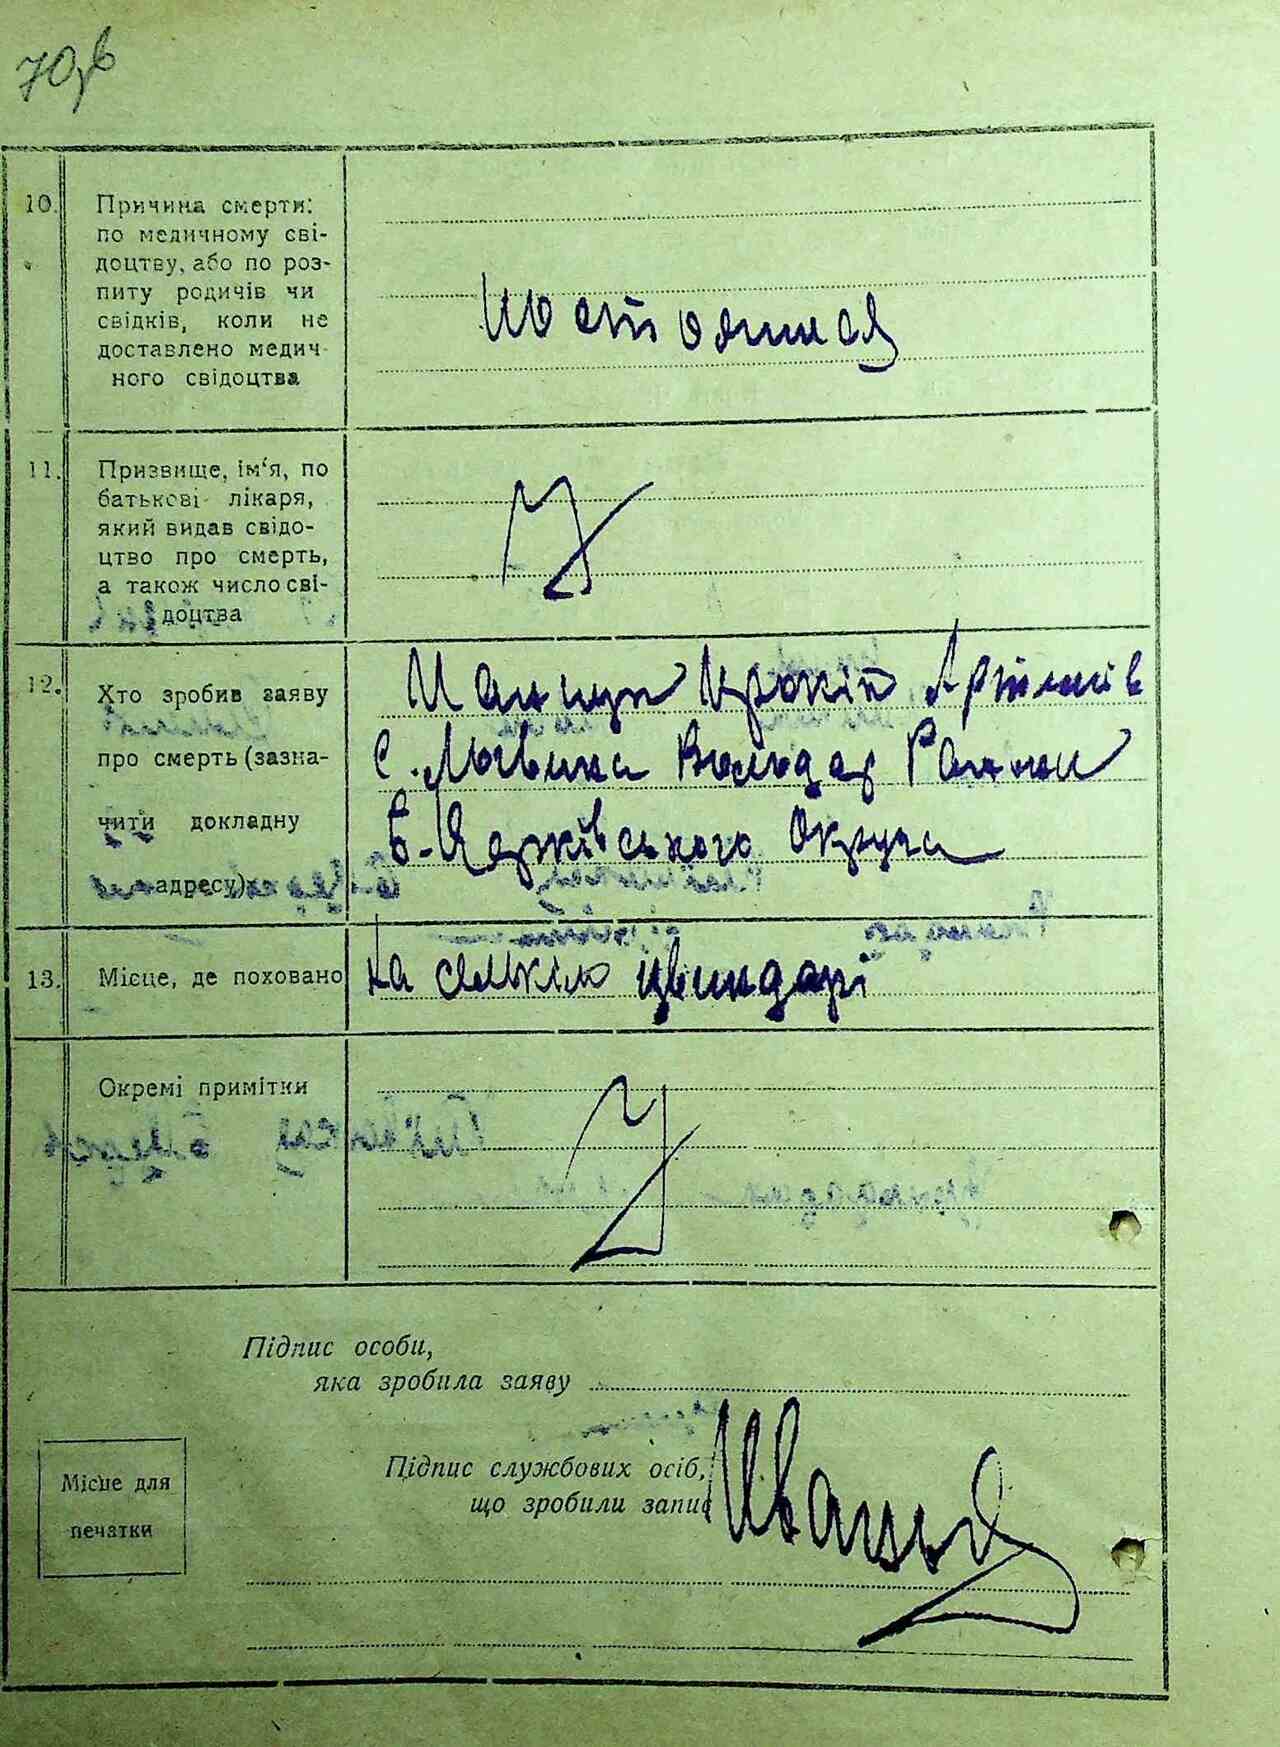 70зв
10. Причина смерти:
по медичному сві-
доцтву, або по роз-
питу родичів чи
свідків, коли не
доставлено медич-
ного свідоцтва
11. Призвище, ім‘я, по
батькові лікаря,
який видав свідо-
цтво про смерть,
а також число сві-
доцтва
12. Хто зробив заяву
про смерть (зазна-
чити докладну
адресу)
Прокіп Артемів
С. Району
Б-Церківського Округа
13. Місце, де поховано
на цвинтарі
Окремі примітки
Підпис особи,
яка зробила заяву
Підпис службових осіб,
що зробили запис
Місце для
печатки